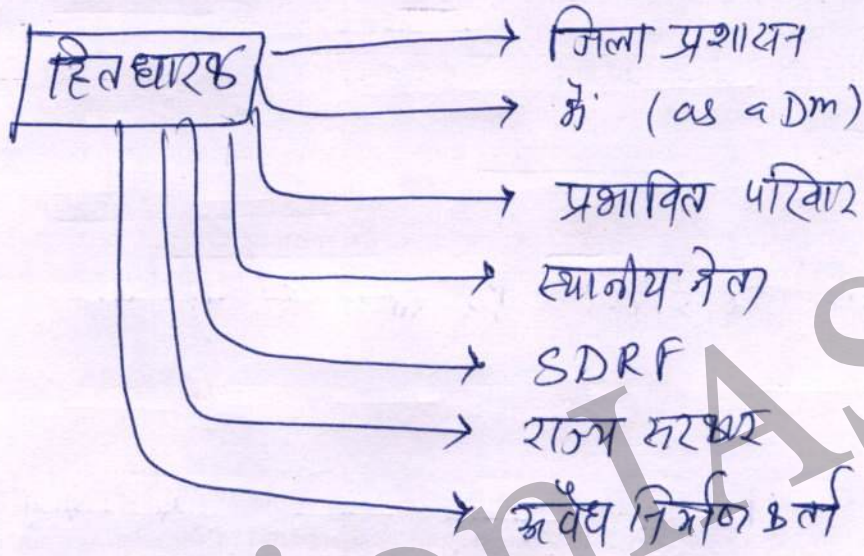 हितधारक
जिला प्रशासन
मैं (as a Dm)
प्रभावित परिवार
स्थानीय नेता
SDRF
राज्य सरकार
अवैध निर्माण कर्ता